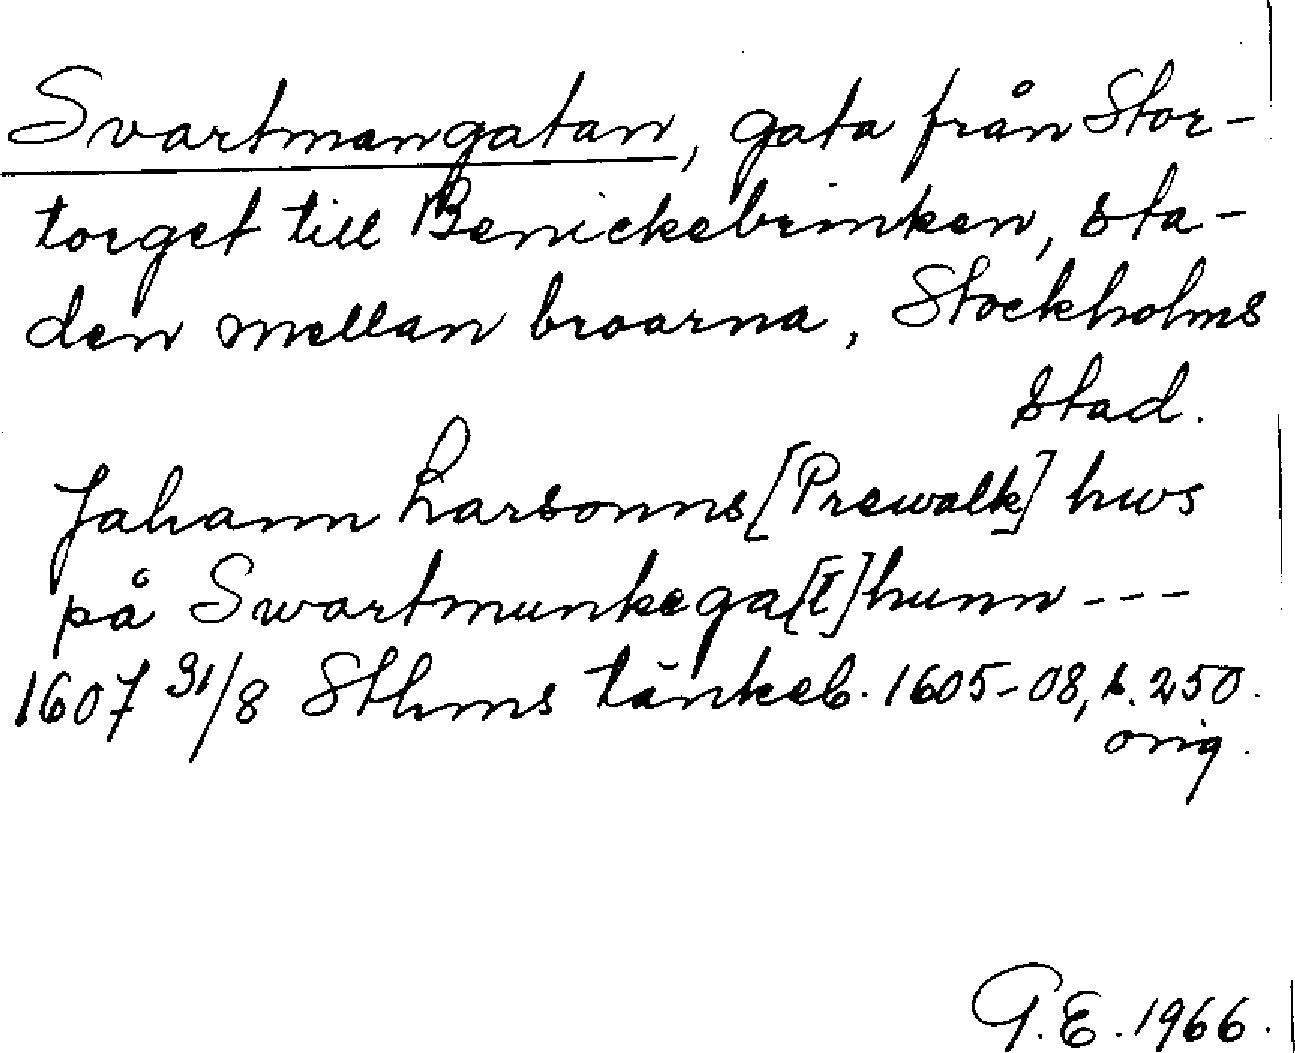 Svartmangatan, gata från Stor-
torget till Benickebrinken, sta-
den mellan broarna, Stockholms
stad.
Johann Larsonns [Prewalk] hws
på Swartmunkega[t]hunn ---
1607 31/8 Sthms tänkeb. 1605-08, s. 250.
orig.
G.E. 1966.